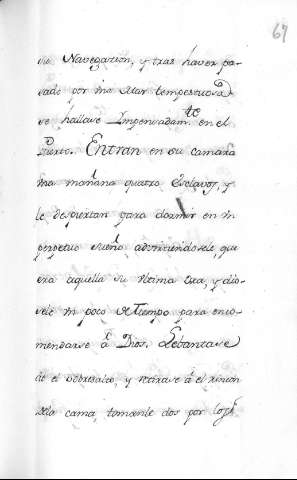 67
su Navegazion, y tras haver pa-
sado por una Mar tempestuosa
se hallase Impensadam.te en el
Puerto. Entran en su camara
una mañana quatro Esclavos, y
le despiertan para dormir en un
perpetuo sueño advirtiendosele, que
era aquella su ultima ora, y dio-
sele un poco de Tiempo para enco-
mendarse à Dios. Lebantase
de el sobresalto, y retirase à el rincon
dela cama, tomanle dos por los